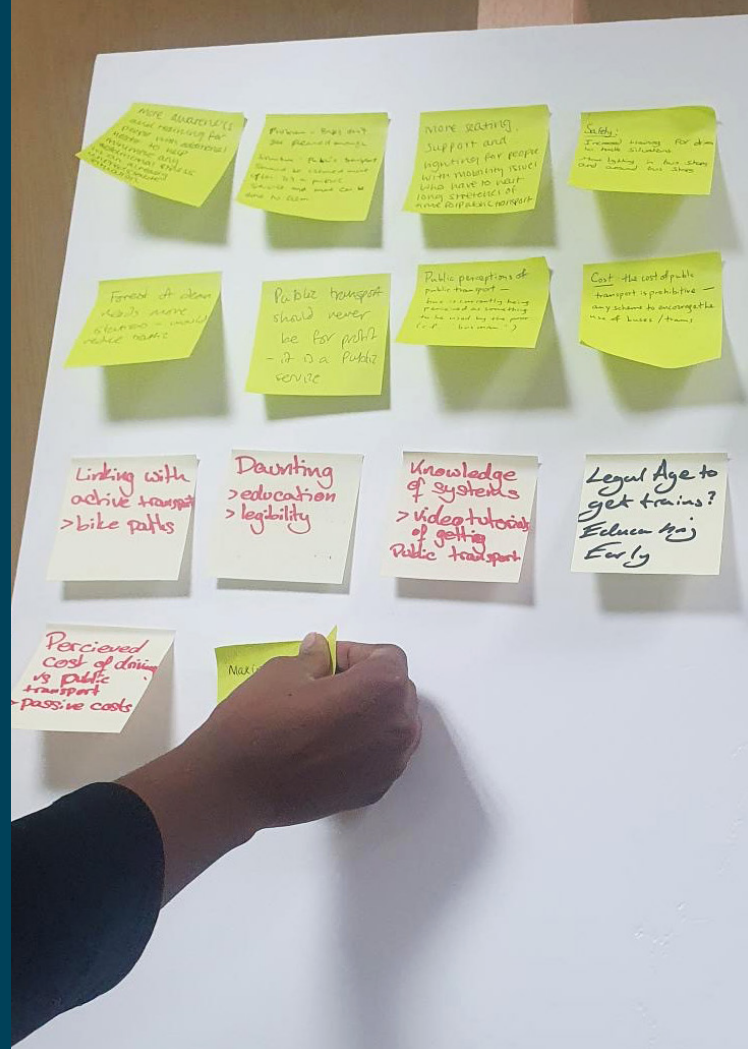 More awareness
and training for
people with additional
needs to help
minimise any
additional stress
in an already
situation
Problem - Buses don't
get cleaned enough
Solution - Public transport
should be cleaned more
often. It's a public
service and more can be
done to clean
More seating,
support and
lighting for people
with mobility issues
who have to wait
long stretches of
time for public transport
Safety:
Increased training for drivers
to tackle situations
More lighting in bus stops
and around bus stops
Forest of dean
needs more
stations - would
reduce traffic
Public transport
should never
be for profit
- it is a Public
service
Public perceptions of
public transport -
bus is currently being
perceived as something
to be used by the poor
(c.f. 'bus man')
Cost: the cost of public
transport is prohibitive -
any scheme to encourage the
use of buses / trains
Linking with
active transport
> bike paths
Daunting
> education
> legibility
Knowledge
of systems
> video tutorials
of gettig
Public transport
Legal Age to
get trains?
Educating
Early
Percieved
cost of driving
vs public
transport
> passive costs